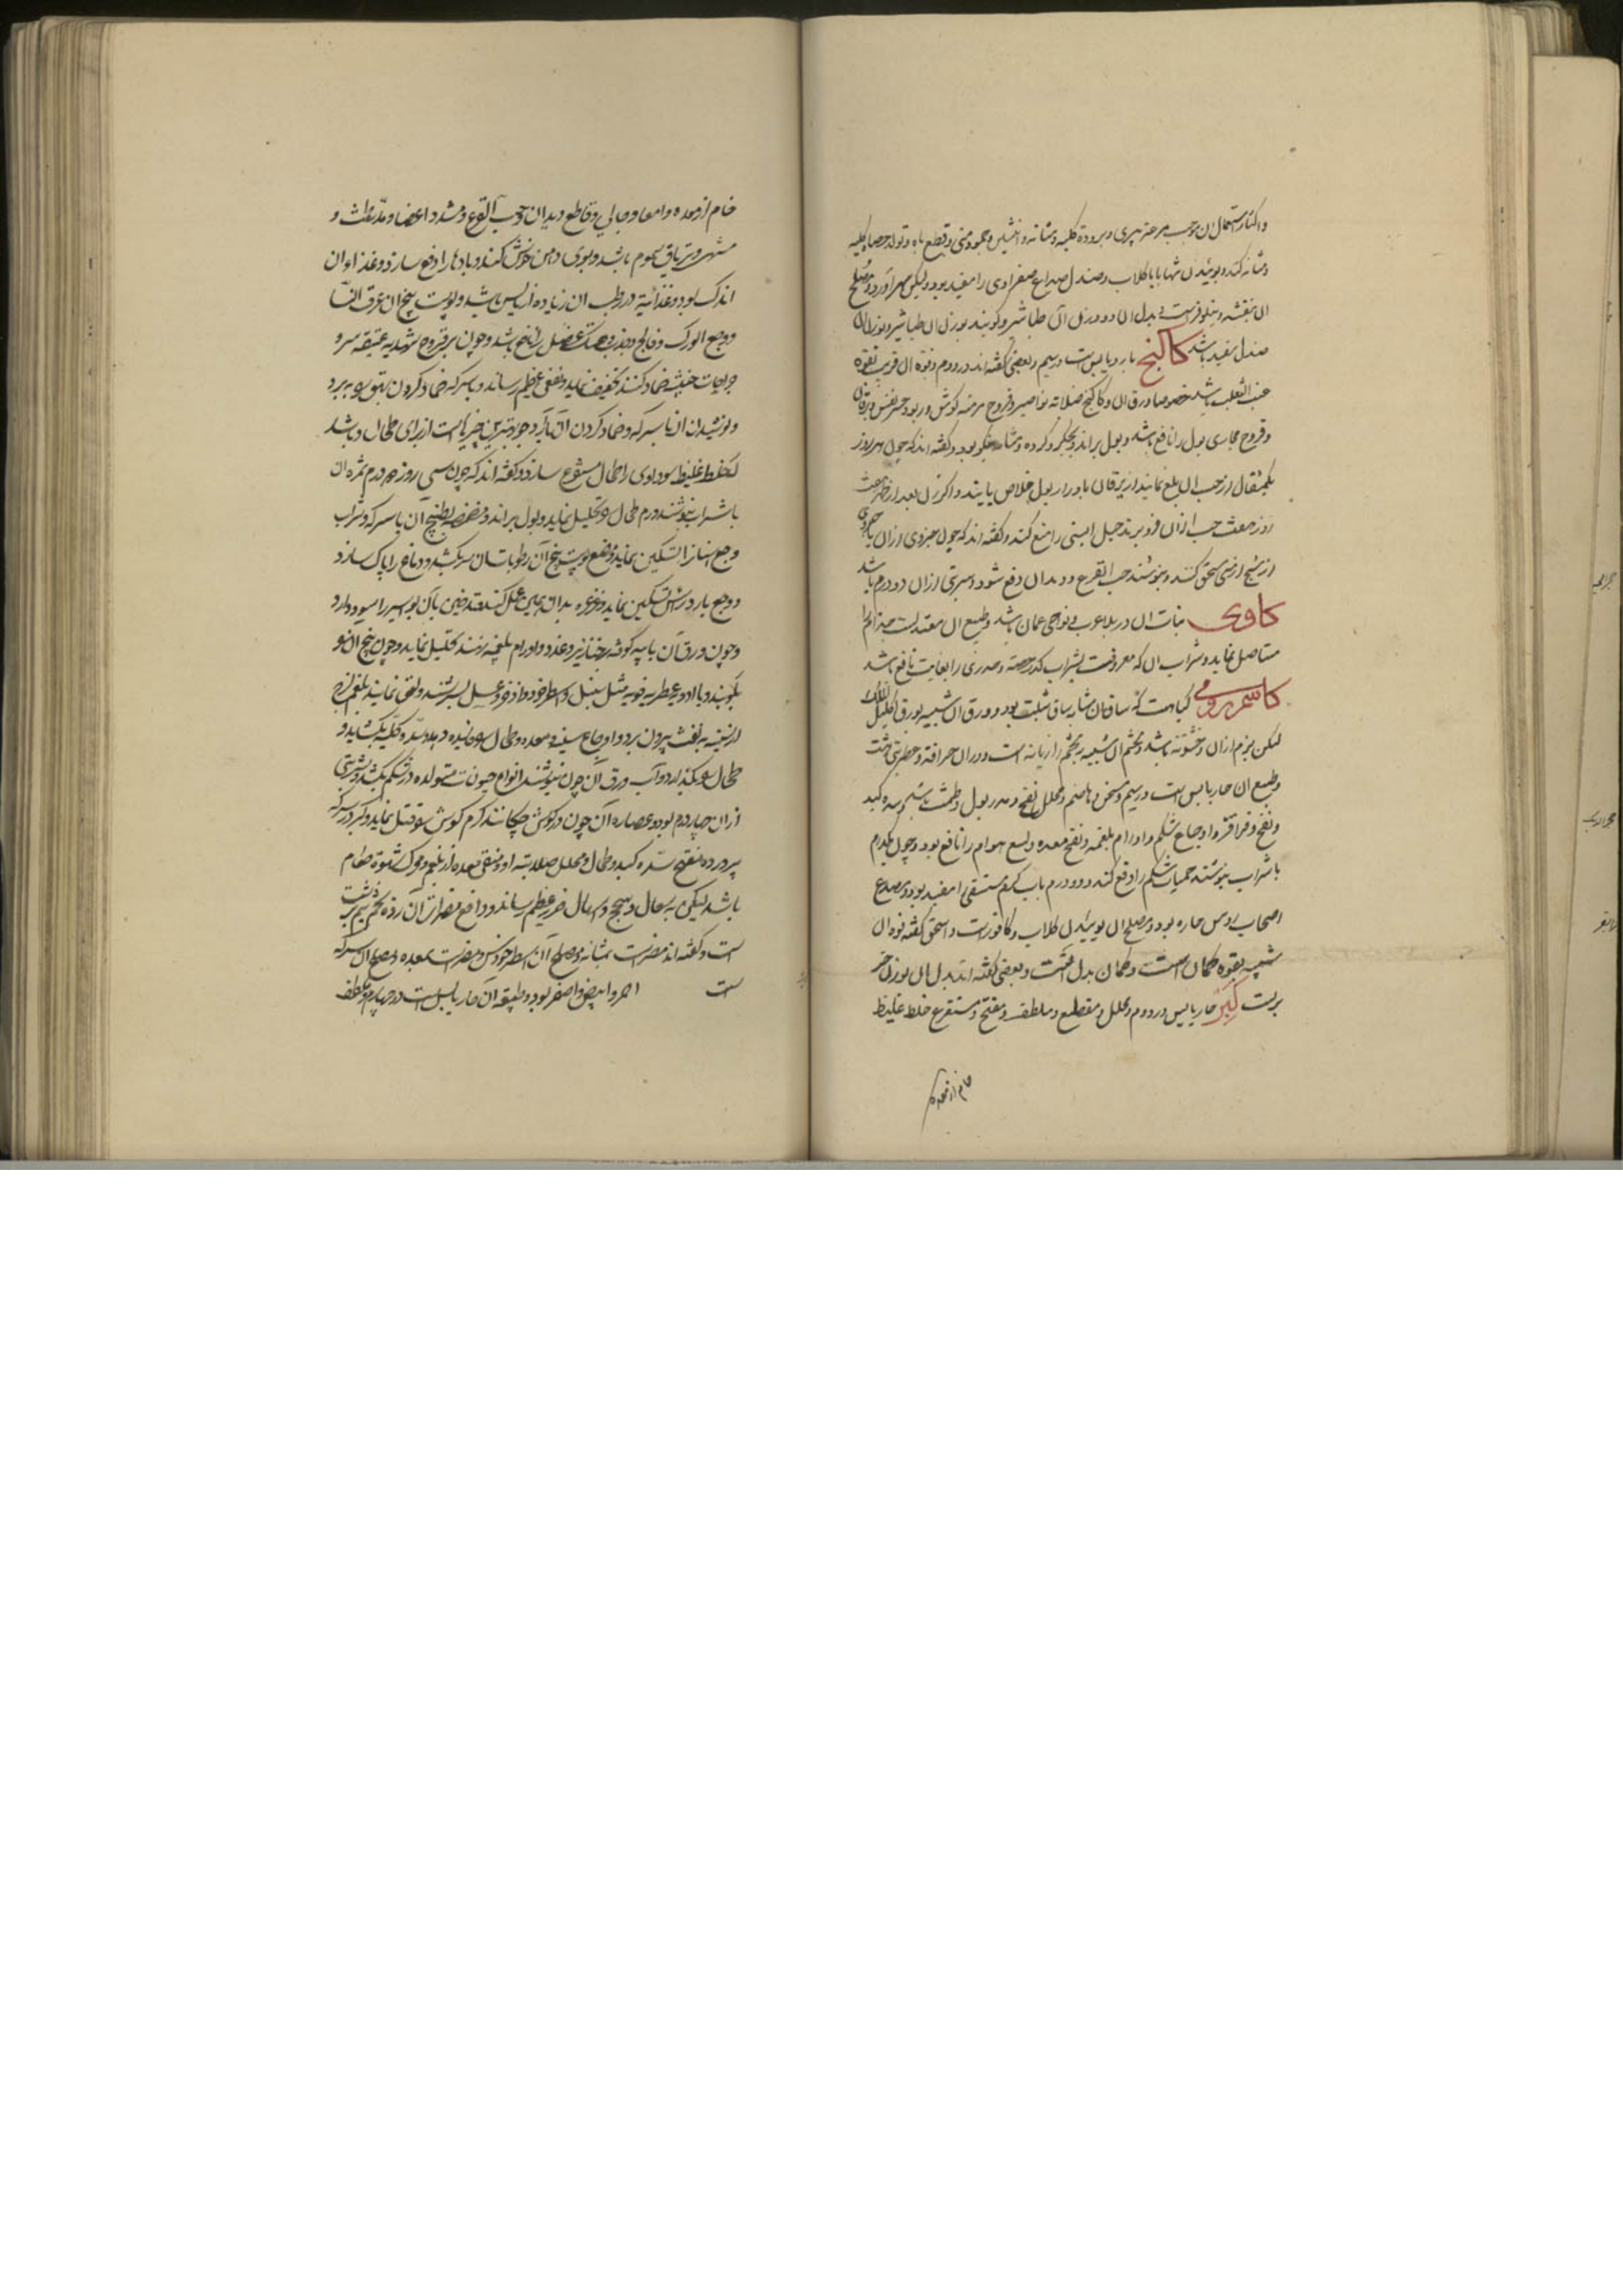 واکثار استعمال ان موجب سرعة پیری وبرودة کلیه ومثانه وانثیین وجمود منی وقطع باه وتولد حصاة کلیه
ومثانه کند وبوئیدن تنها یا باکلاب وصندل صداع صفراوی را مفید بود ولیکن سهر آورد ومصلح
ان بنفشه ونیلوفر است بدل ان دو وزن آن طباشیر وکویند بوزن ان طباشیر وبوزن ان
صندل سفید باشد کاکنج بارد ویابس است در سیم وبعضی کفته اند در دوم وقوة ان قریب بقوة
عنب الثعلب باشد خصوصا ورق ان وکاکنج صلابه نواصیر وقروح مزمنه کوش وربو وعسر نفس ویرقان
وقروح مجاری بول را نافع باشد وبول براند وجکر وکرده ومثانه نیکو بود وکفته اند که چون هر روز
یکمثقال از حب ان بلع نمایند از یرقان بادرار بول خلاص یابند واکر زن بعد از طهر هفت
روز هفت حب ازان فرو برد حبل ابستنی را منع کند وکفته اند که چون جزوی ازان با جزوی
از شیح ارمنی سحق کنند وبنوشند حب القرع ودیدان دفع شود وشربتی ازان دو درم باشد
کاوی نبات ان در بلاد عرب بنواحی عمان باشد وطبع ان معتدلست جذام را
مستاصل نماید وشراب ان که معروفست بشراب کدر حصبه وجدری را بغایت نافع باشد
کاشم رومی کیاهست که ساق ان مشابه ساق شبت بود وورق ان شبیه بورق اکلیل الملک
لیکن نرم ازان وخشونه باشد وتخم ان شبیه بتخم رازیانه است ودران حرافة وعطریتی هست
وطبع ان حار یابس است در سیم ومسخن وهاضم ومحلل نفخ ومدر بول وطمث باشد وسده کبد
ونفخ وقراقر واوجاع شکم واورام بلغمیه ونفخ معده ولسع هوام را نافع بود وچون یکدرم
با شراب بنوشند حمیات شکم را دفع کند ودو درم باب کرم مستسقی را مفید بود ومصدع
اصحاب روس حاره بود ومصلح ان بوئیدن کلاب وکافورست واسحق کفته قوة ان
شبیه بقوة کمان است وکمان بدل انست وبعضی کفته اند بدل ان بوزن جزر
بریست کبر حار یابس در دوم ومحلل ومقطع وملطف ومفتح ومستفرغ خلط غلیظ
خام از معده
خام از معده وامعا وجالی وقاطع ودیدان وحب القرع ومشدد اعضا ومدر طمث و
مشهی وتریاق سموم باشد وبوی دهن خوش کند وبادها را دفع سازد وغذاء ان
اندک بود وغذائیة در رطب ان زیاده از یابس باشد وپوست بیخ ان عرق النسا
ووجع الورک وفالج وخدر وهتک عضل را نافع باشد وچون بر قروح شهدیه عتیقه سرو
جراحات خبیثه ضماد کنند تخفیف نماید ونفعی عظیم رساند وبا سرکه ضماد کردن بهق را ببرد
ونوشیدن ان با سرکه وضماد کردن ان با آرد جو بهترین چیزهاست از برای طحال وباشد
که خلط غلیظ سوداوی را طحال مستفرغ سازد وکفته اند که چون سی روز هر روز دو درم ثمره ان
با شراب بنوشند ورم طحال را تحلیل نماید وبول براند ومضمضه بطبیخ آن با سرکه وشراب
وجع اسنان را تسکین نماید ومضغ پوست بیخ آن رطوبات از سر بکشد ودماغ را پاک سازد
ووجع بارد راس تسکین نماید وغرغره بدان همین عمل کند وتدخین بآن بواسیر را سود دارد
وچون ورق آن با پیه کوفته بر خنازیر وغدد واورام بلغمیه نهند تحلیل نماید وچون بیخ ان نو
بکوبند وبا ادویه عطریه قویه مثل سنبل واسطوخودوس واذخر وعسل بسرشند ولعق نمایند بلغم لزج
از سینه به نفث بیرون برد واوجاع سینه ومعده وطحال سود دهد وسده کلیه بکشاید و
طحال را بکدازد وآب ورق آن چون بنوشند انواع حیوانات متولده در شکم بکشد وشربتی
ازان چهار درم بود وعصاره آن چون در کوش چکانند کرم کوش را قتل نماید وکبر در سرکه
پرورده مفتح سده کبد وطحال ومحلل صلابت او ومنقی معده از بلغم ومحرک شهوة طعام
باشد لیکن به سعال وسحج واسهال ضرر عظیم رساند ودافع مضرات آن زرده تخم نیم برشت
است وکفته اند مضرست بمثانه ومصلح آن اسطوخودوس ومضرست بمعده ومصلح ان سرکه
ست احمر وابیض واصفر بود وطبیعة آن حار یابس است در چهارم وملطف